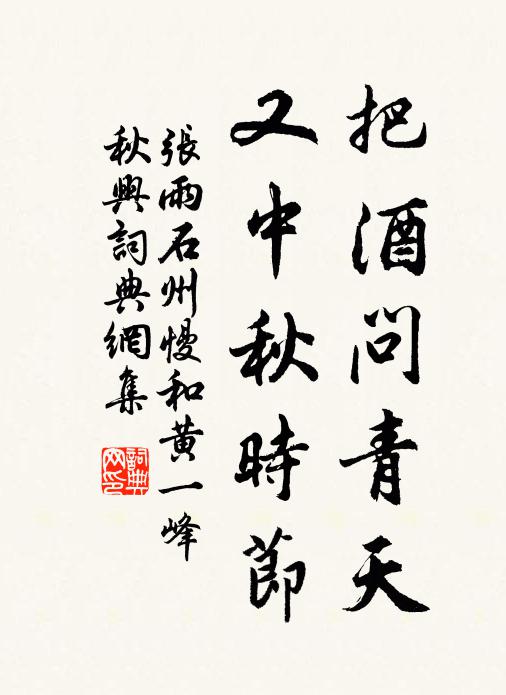 把酒問青天
又中秋時節
張雨石州慢和黃一峰
秋興詞典網集
詞典網印